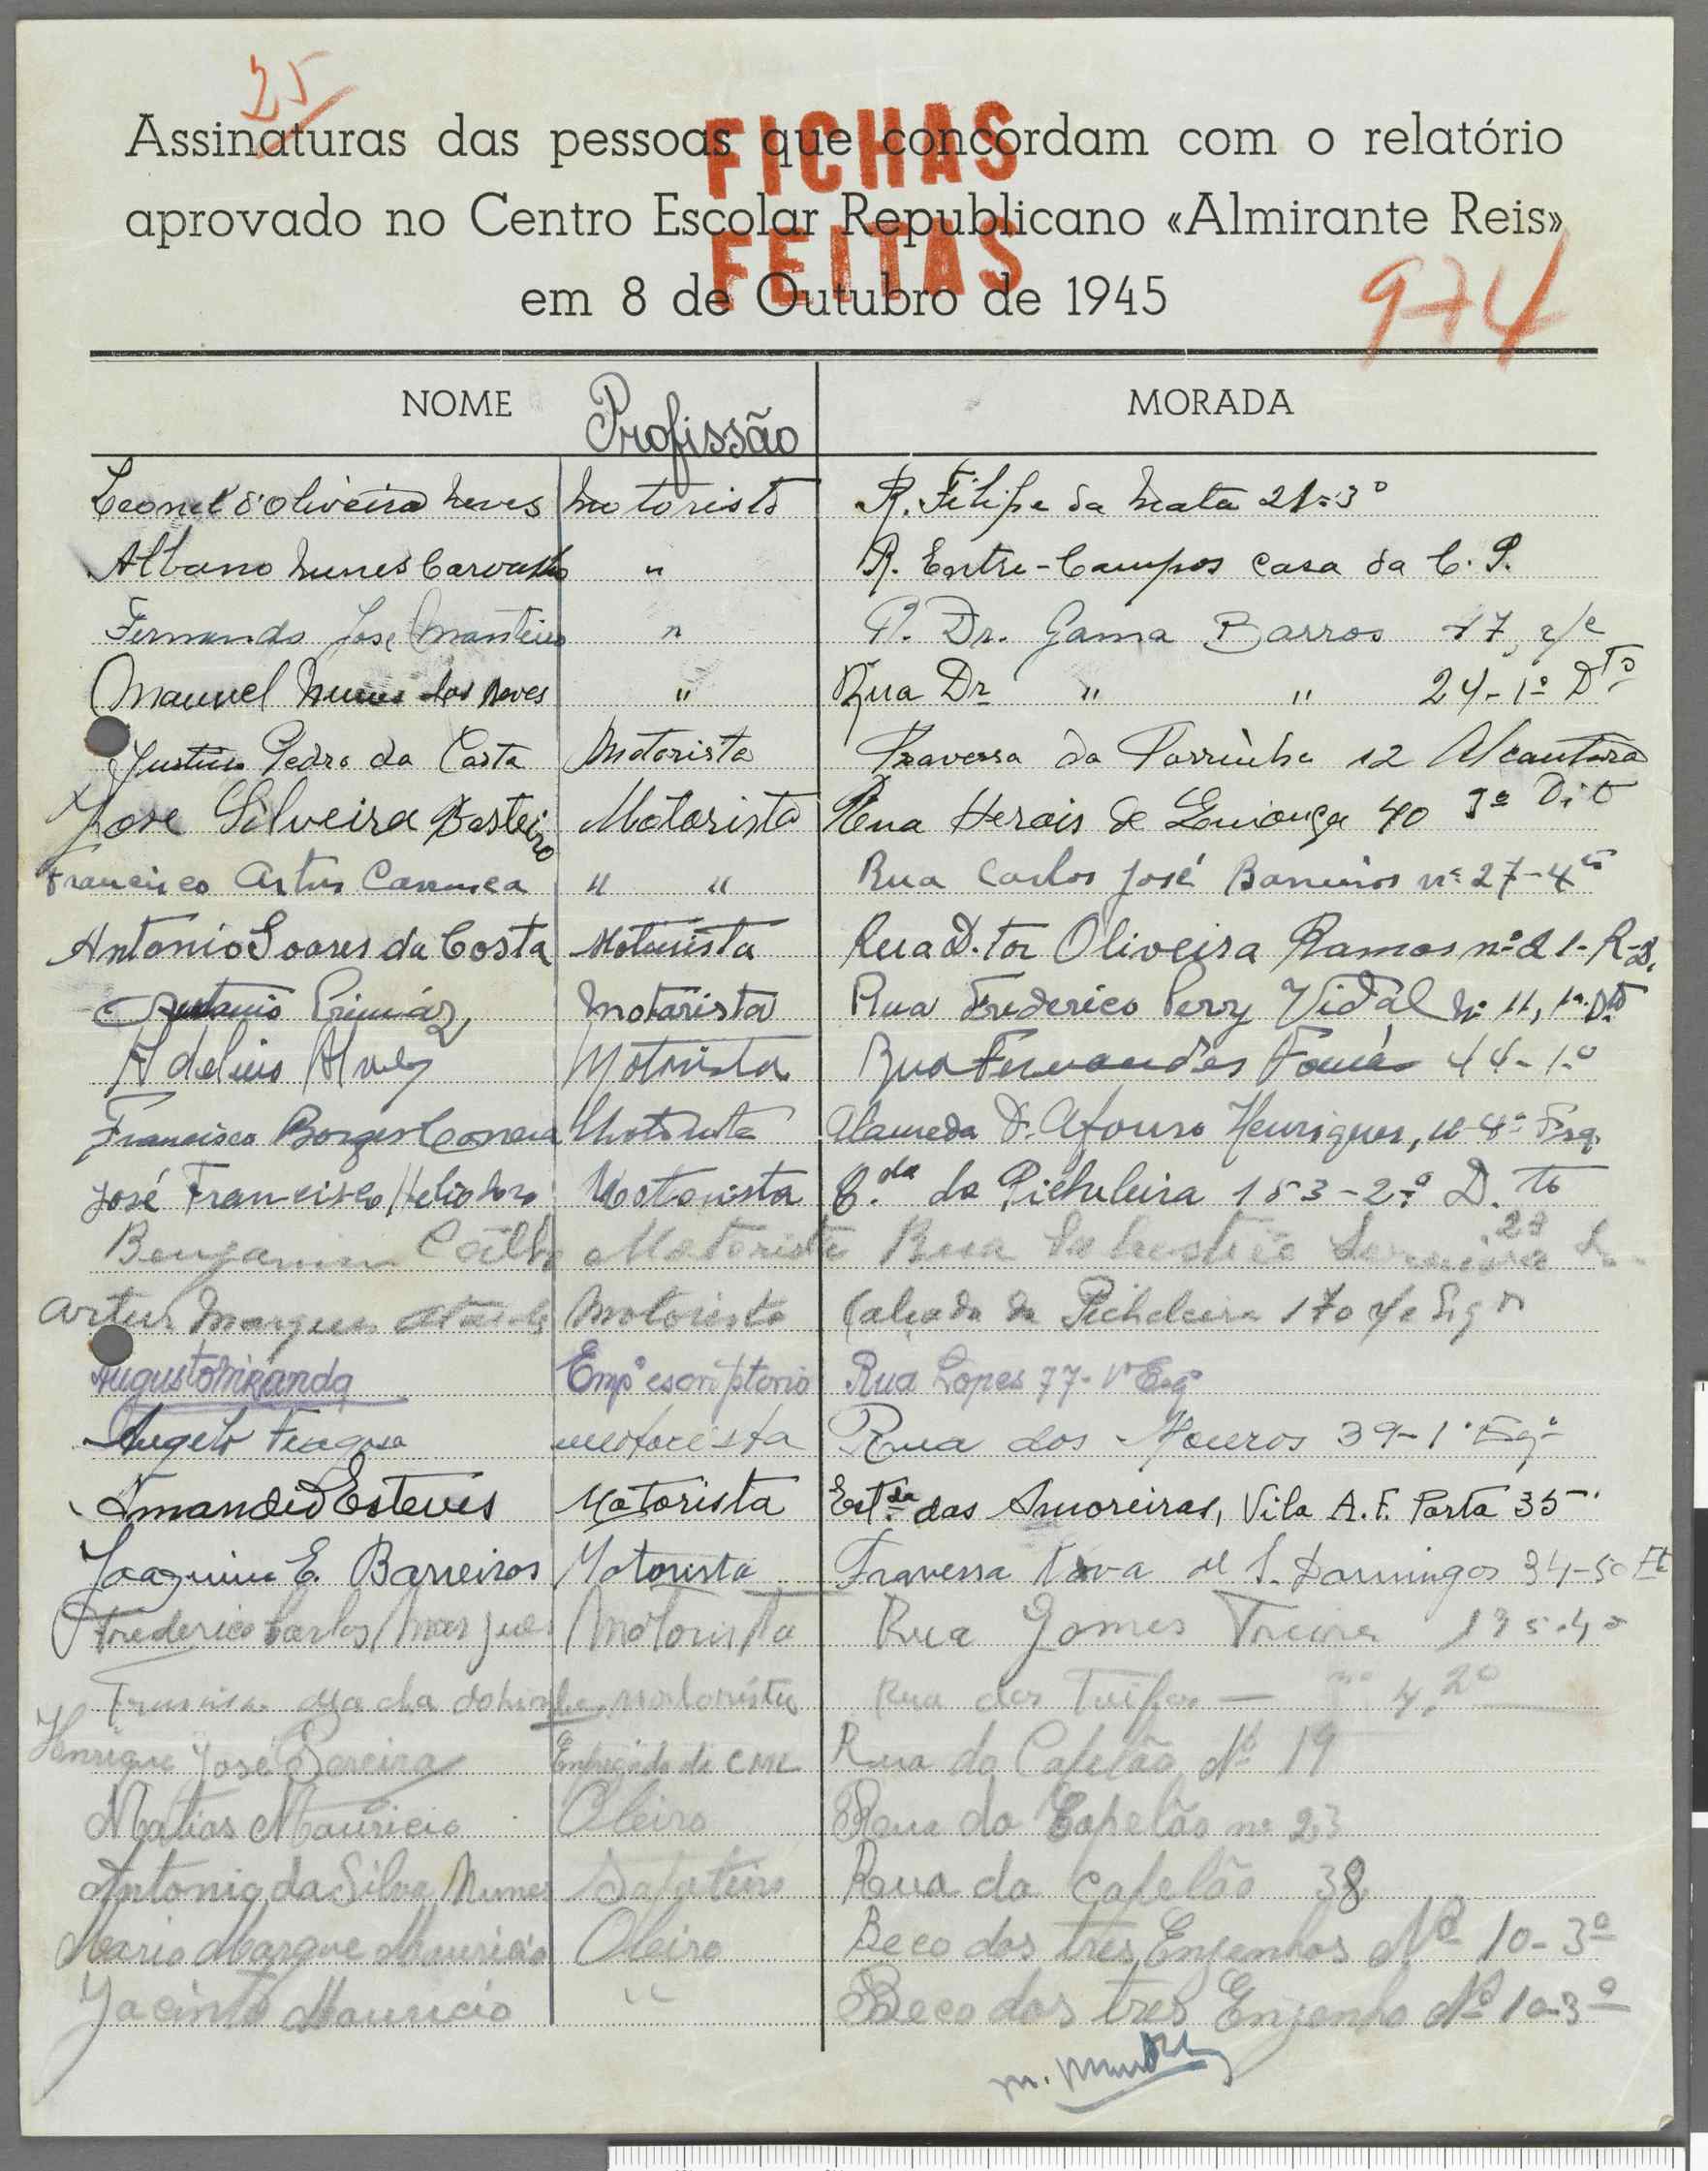 25
Assinaturas das pessoas que concordam com o relatório
FICHAS
aprovado no Centro Escolar Republicano «Almirante Reis»
FEITAS
em 8 de Outubro de 1945
974
NOME Profissão MORADA
Leonel d'Oliveira Neves Motorista R. Filipe da Mata 21=3º
Albano Nunes Carvalho " R. Entre-Campos casa da C. P.
Fernando José Monteiro " R. Dr. Gama Barros 17, r/c
Manuel Nunes das Neves " Rua Dr " " 24-1º Dto
Justino Pedro da Costa Motorista Travessa da 12 Alcantara
Jose Silveira Basteiro Motorista Rua Herois de 40 3º Dto
Francisco Artur " " Rua Carlos José Barreiros nº 27-4º
Antonio Soares da Costa Motorista Rua D.tor Oliveira Ramos nº 21-R-D.
Motorista Rua Frederico Perry Vidal Nº 11, 1º Dto
Adelino Alves Motorista Rua Fernandes Tomás 44-1º
Francisco Borges Correia Motorista Alameda D. Afonso Henriques, Esq.
José Francisco Heliodoro Motorista C.da da Picheleira 153-2º D.to
Benjamim Motorista Rua 23
Artur Marques Motorista Calçada da Picheleira 170 r/c Esqº
Augusto Miranda Empº escriptorio Rua Lopes 77-1º Esqº
Angelo Fragoso motorista Rua dos Mouros 39-1º Esqº
Amandio Esteves Motorista Estda das Amoreiras, Vila A. F. Porta 35
Joaquim E. Barreiros Motorista Travessa Nova de S. Domingos 34-5º
Frederico Carlos Marques Motorista Rua Gomes 135-4º
Motorista Rua das 4, 2º
Henrique José Pereira Empregado de Rua do Capelão Nº 19
Matias Mauricio Oleiro Rua do Capelão nº 23
Antonio da Silva Nunes Sapateiro Rua do Capelão 38
Mario Marque Mauricio Oleiro Beco dos tres Engenhos Nº 10-3º
Jacinto Mauricio " Beco dos tres Engenho Nº 10-3º